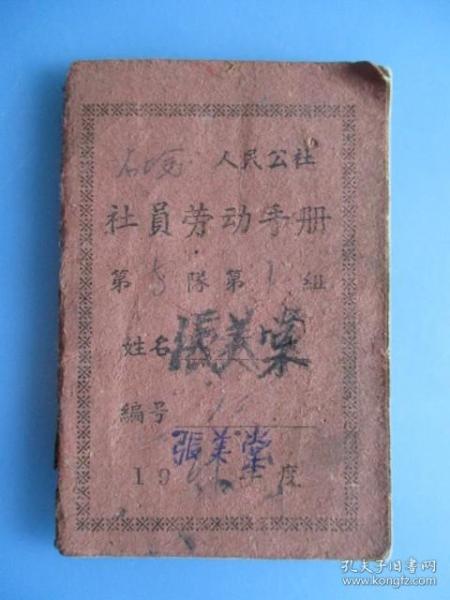 人民公社
社員劳动手册
第5隊第1組
姓名 張美棠
編号
張美棠
19 年度
孔夫子旧书网
www.kongfz.com